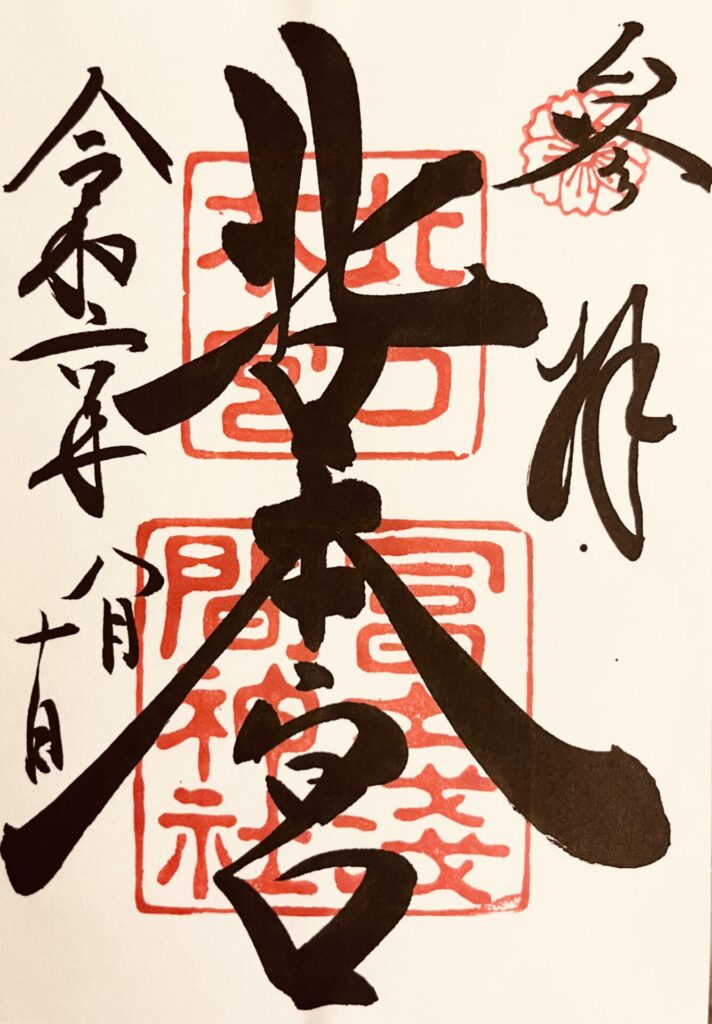 参拝
北口本宮
北口
本宮
冨士浅
間神社
令和二年
八月
十日